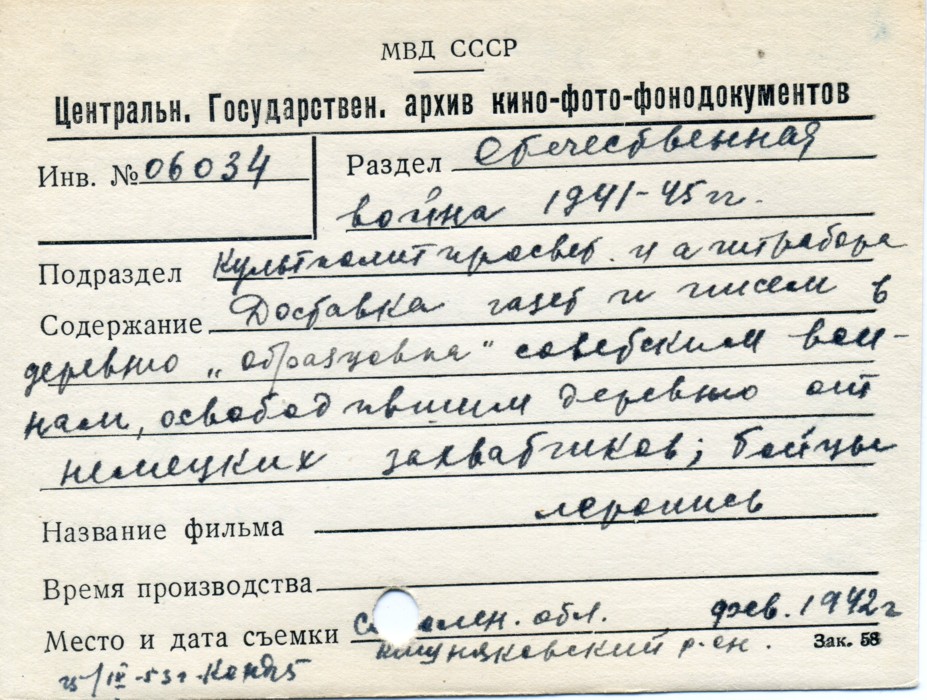 МВД СССР
Центральн. Государствен. архив кино-фото-фонодокументов
Инв. № 06034
Раздел Отечественная
война 1941-45 гг.
Подраздел Культполитпросвет. и агитработа
Содержание Доставка газет и писем в
деревню „Образцовка“ советским вои-
нам, освободившим деревню от
немецких захватчиков; бойцы
Название фильма летопись
Время производства
Место и дата съемки олен. обл. фев. 1942 г
р-он. Зак. 58
25/IV-53 г.